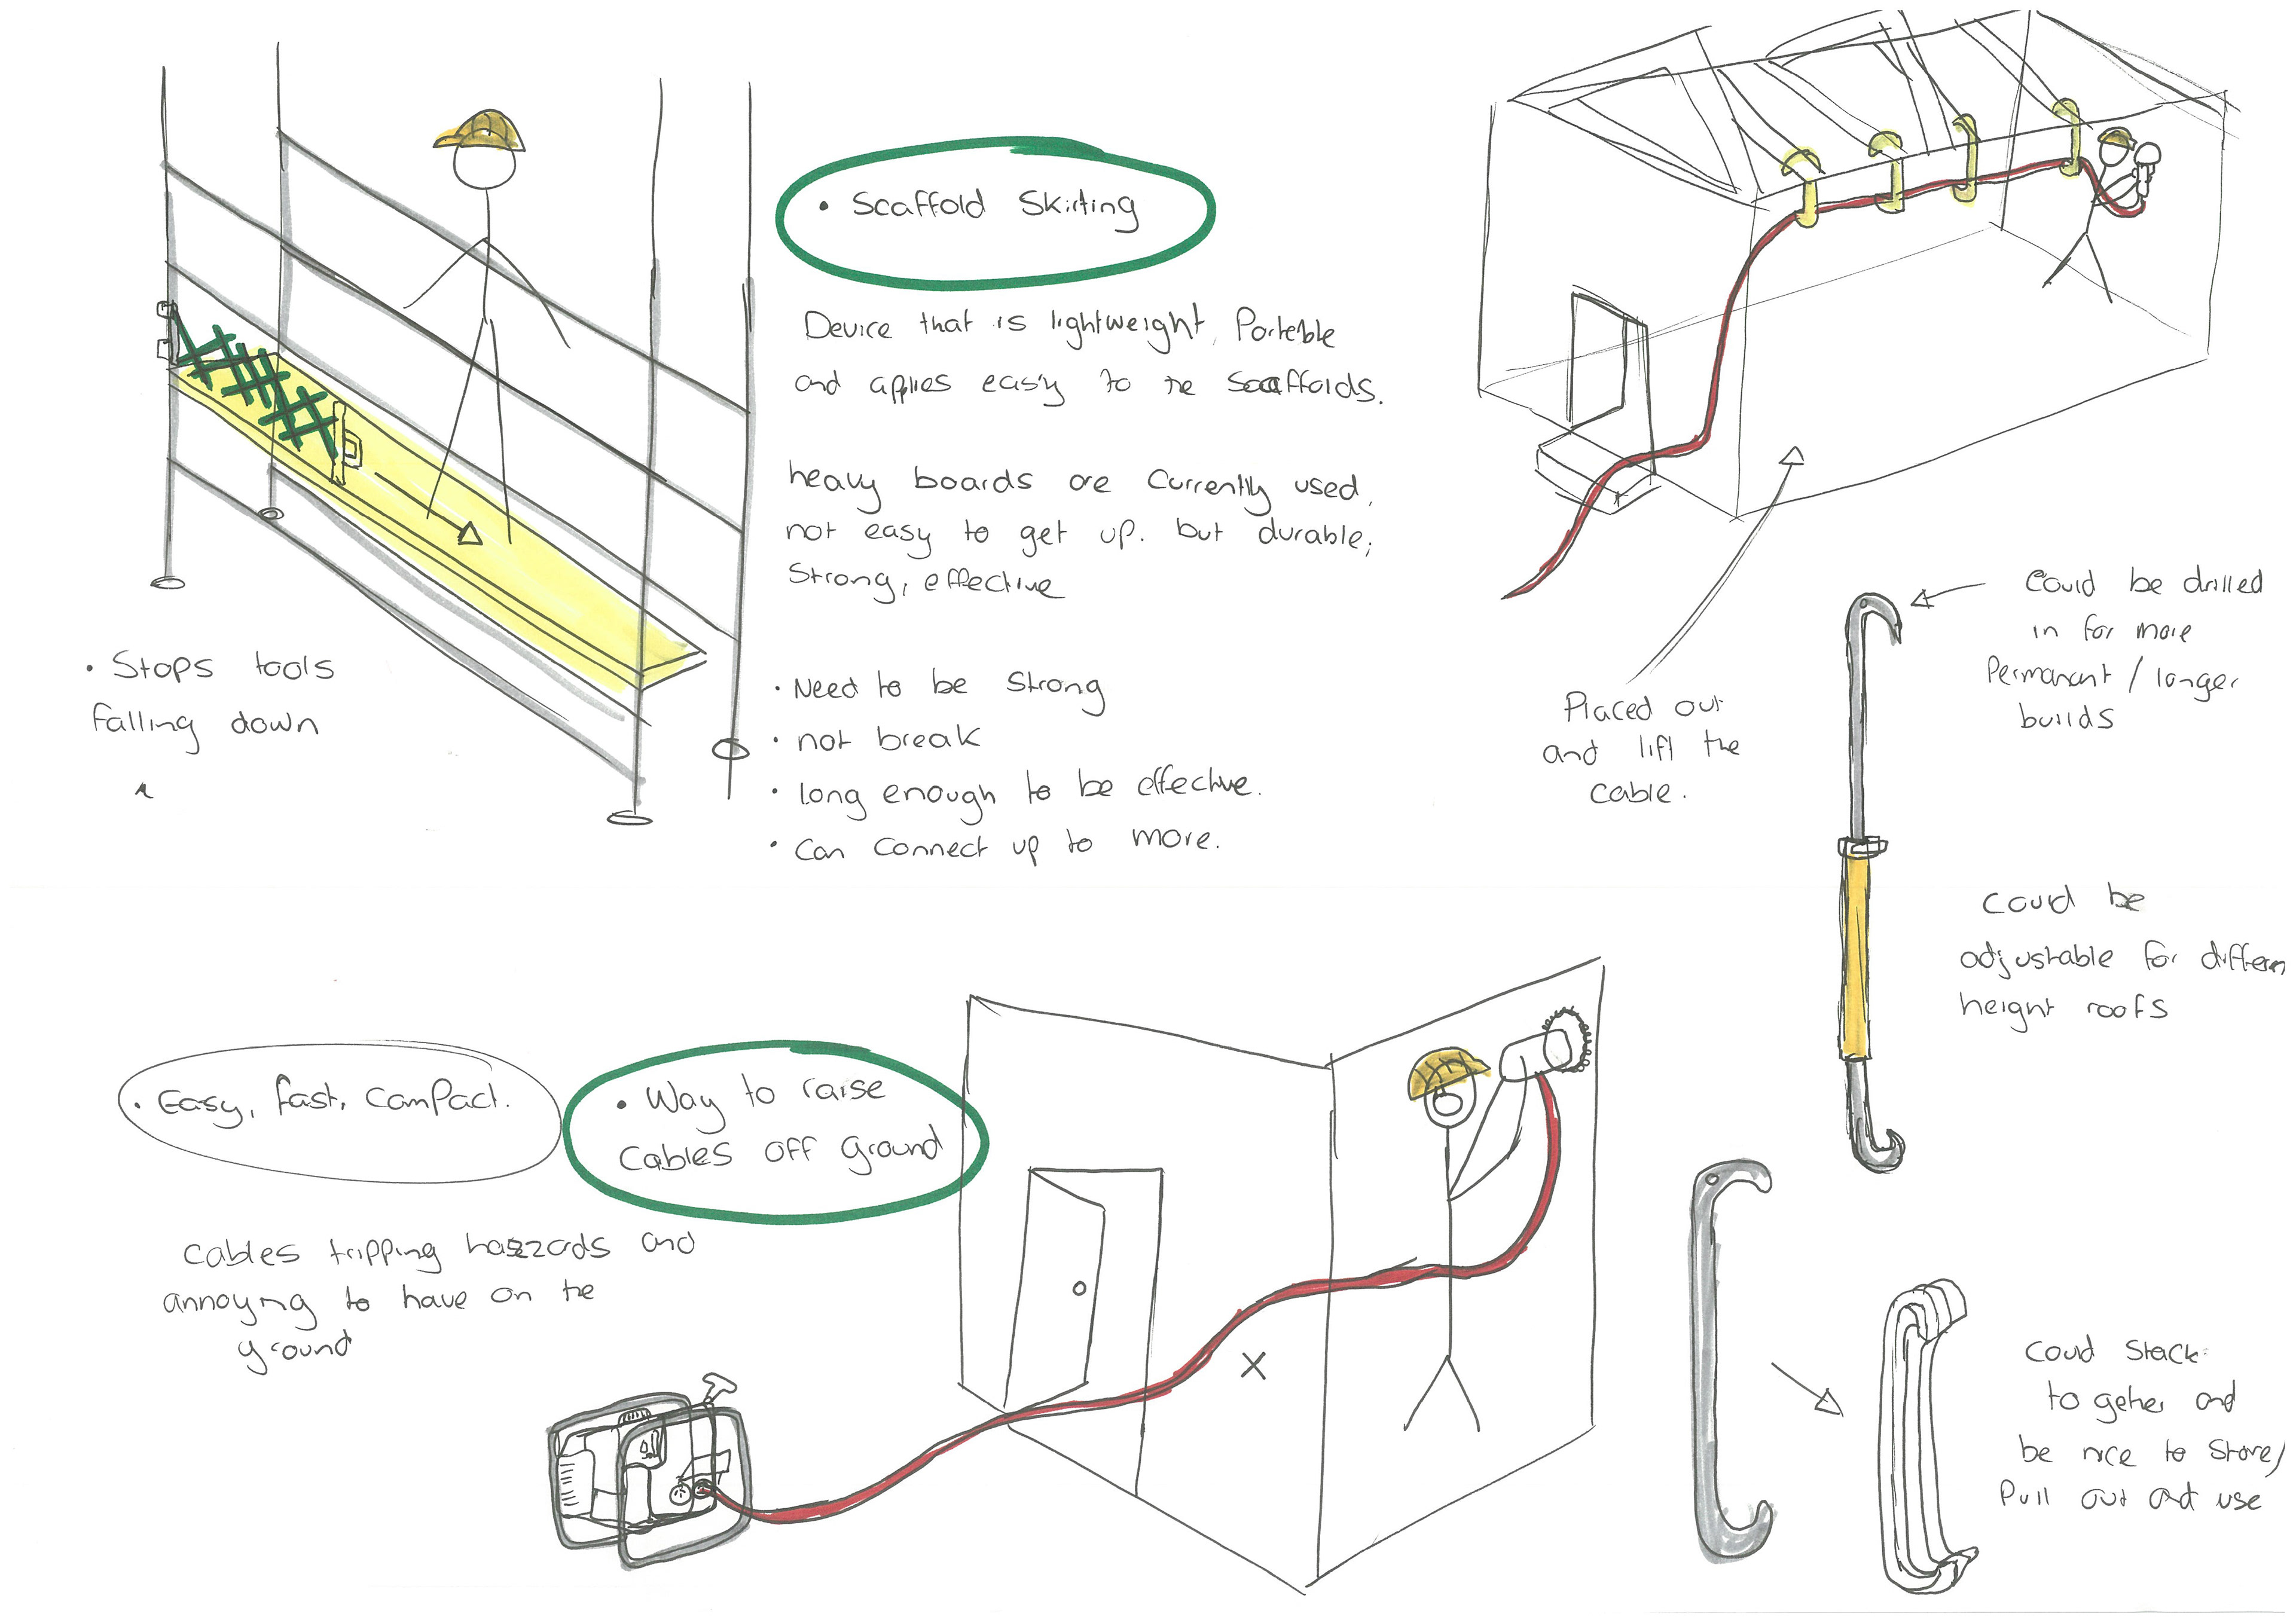 • Scaffold Skirting
Device that is lightweight, Portable
and applies easy to the Scaffolds.
heavy boards are currently used,
not easy to get up. but durable,
Strong, effective
• Stops tools
falling down
• Need to be Strong
• not break
• long enough to be effective.
• Can connect up to more.
Placed out
and lift the
cable.
Could be drilled
in for more
Permanant / longer
builds
Could be
adjustable for differen
height roofs
• Easy, fast, comPact.
• Way to raise
cables off ground
cables tripping hazzads and
annoying to have on the
ground
X
Could Stack
to gether and
be nice to Store/
Pull out and use